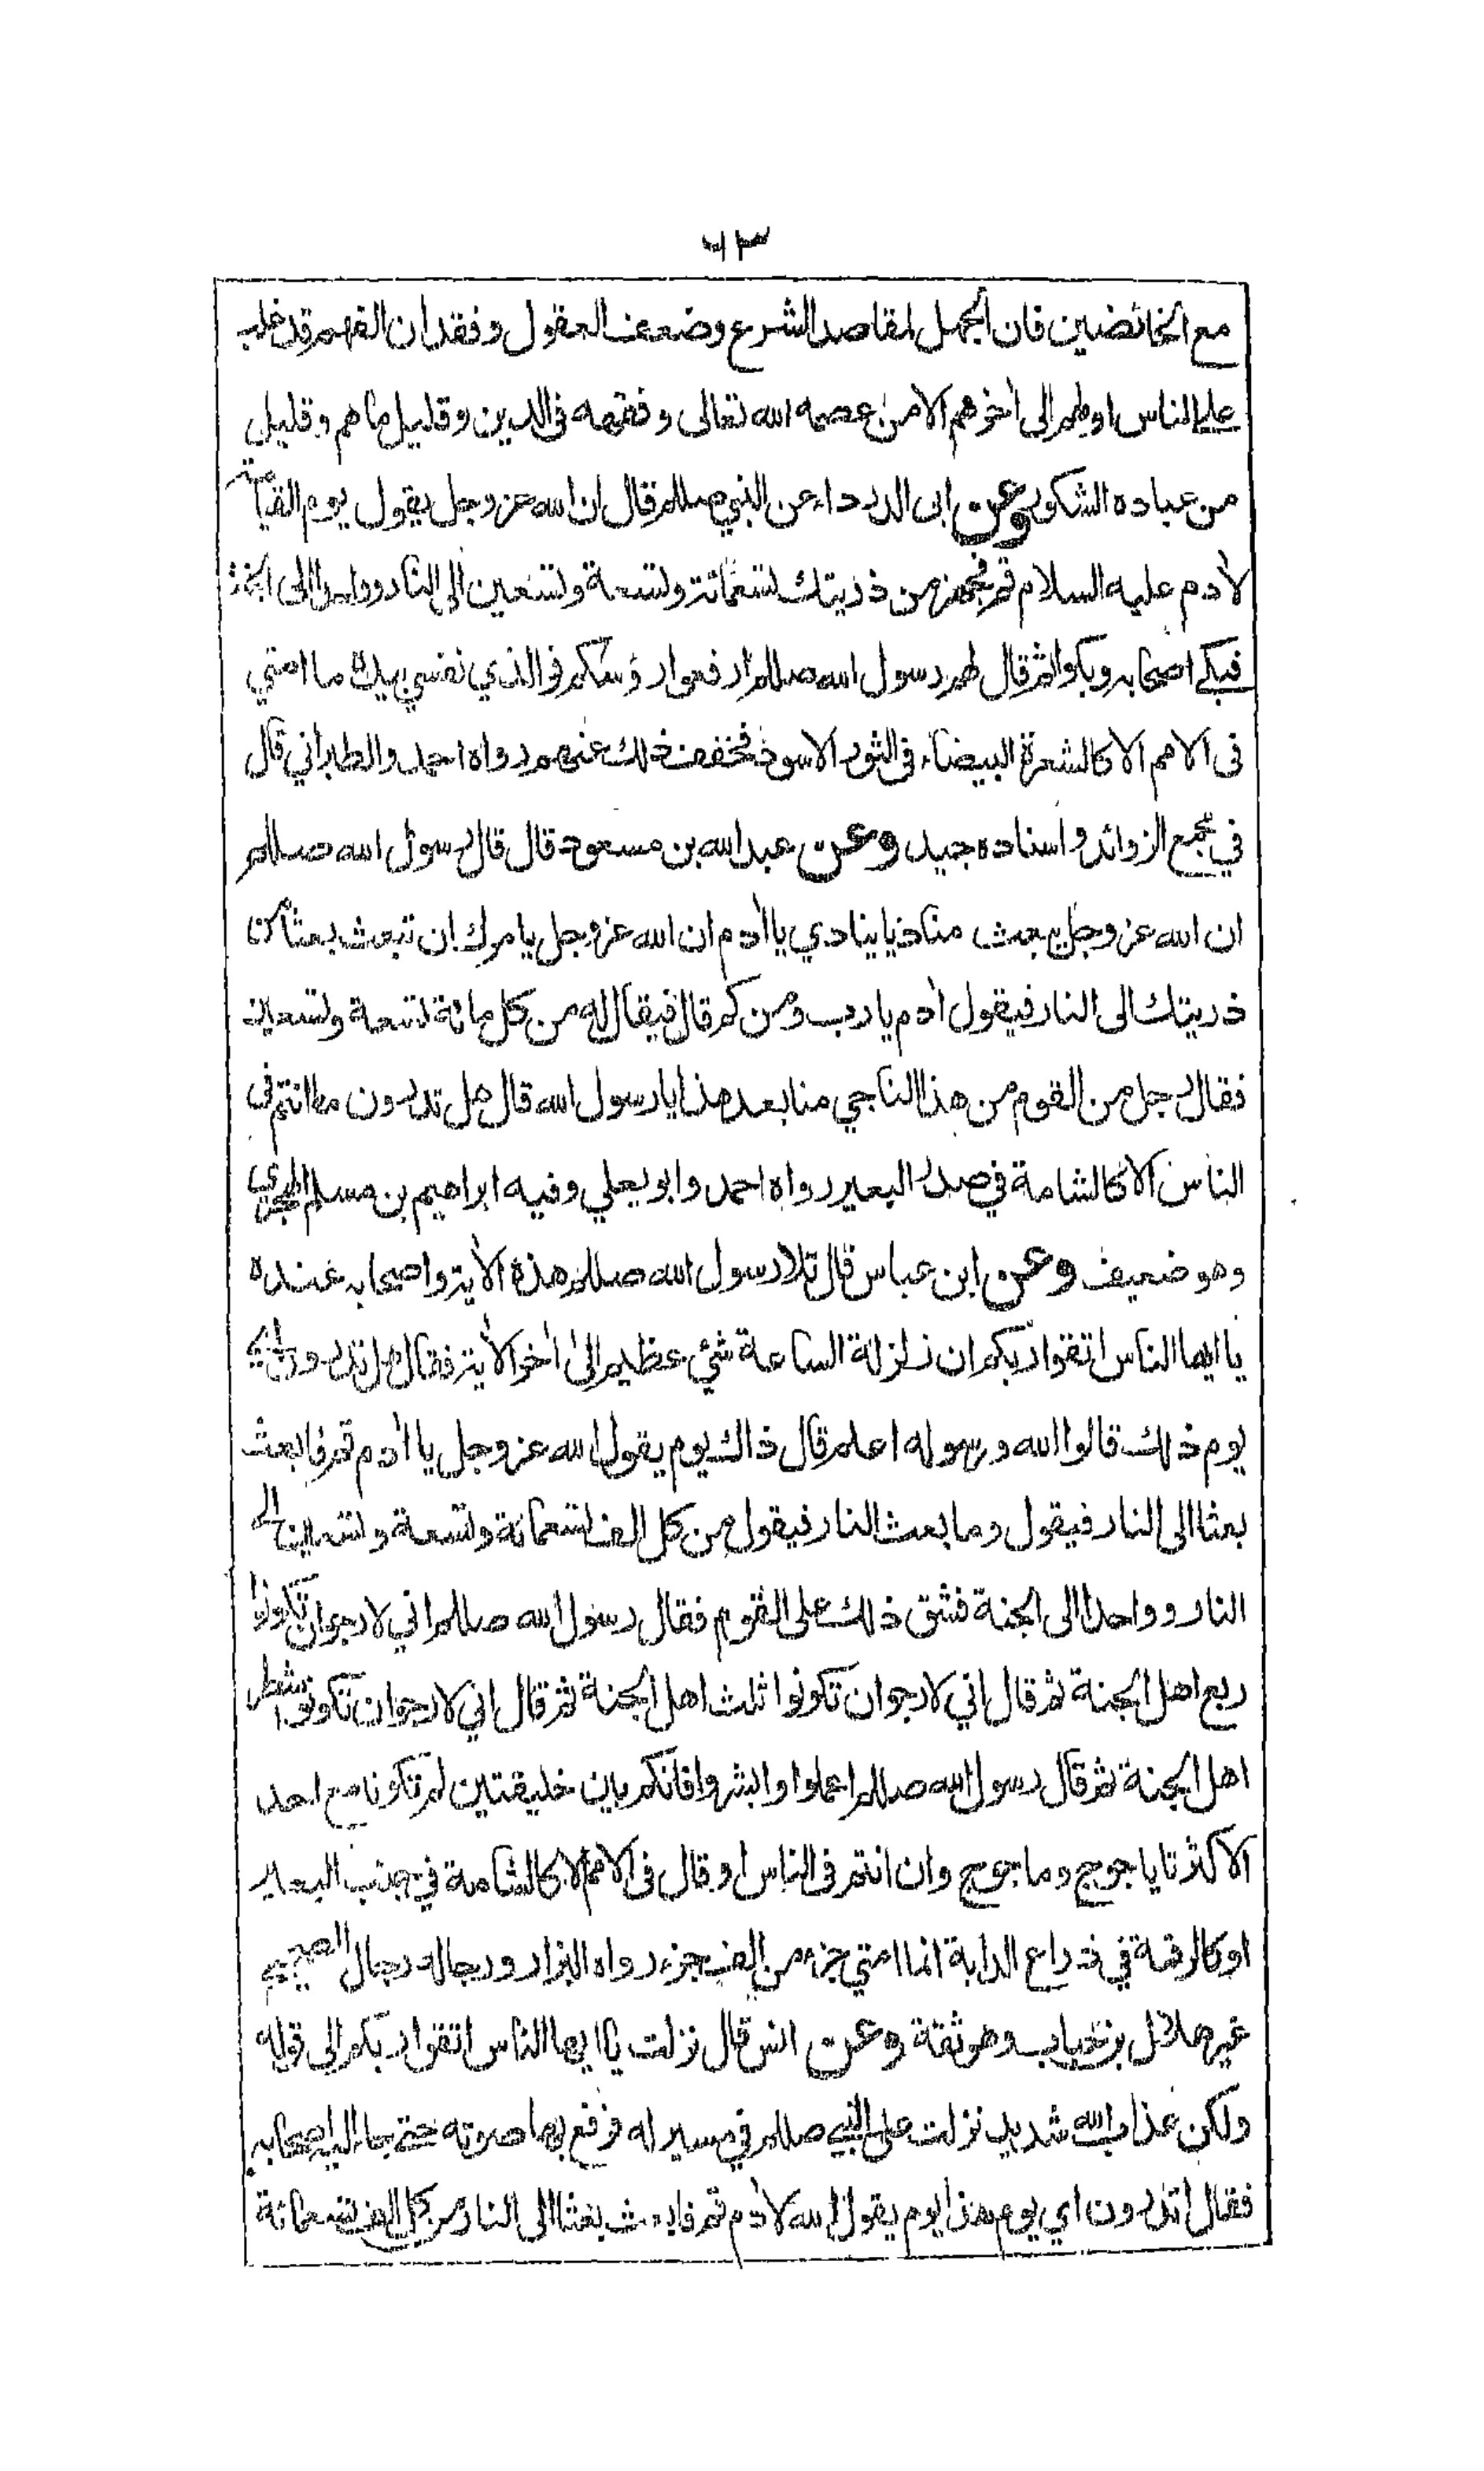 ٦٣
مع الخائضين فان الجهل لمقاصد الشرع وضعف العقول وفقدان الفهم قد غلب
على الناس اولهم الى أخرهم الا من عصمه الله تعالى وفقهه فى الدين وقليل ما هم وقليل
من عباده الشكور وعن ابى الدرداء عن النبي صللم قال ان الله عز وجل يقول يوم القيامة
لأدم عليه السلام قم فجهز من ذريتك تسعمائة وتسعة وتسعين الى النار وواحدا الى الجنة
فبكى اصحابه وبكوا ثم قال لهم رسول الله صللم ارفعوا رؤسكم فوالذي نفسي بيده ما امتي
فى الامم الا كالشعرة البيضاء فى الثور الاسود فخفف ذلك عنهم رواه احمد والطبراني قال
في مجمع الزوائد واسناده جيد وعن عبد الله بن مسعود قال قال رسول الله صللم
ان الله عز وجل يبعث مناديا ينادي يا أدم ان الله عز وجل يامرك ان تبعث بعثا من
ذريتك الى النار فيقول أدم يا رب ومن كم قال فيقال له من كل مائة تسعة وتسعين
فقال رجل من القوم من هذا الناجي منا بعد هذا يا رسول الله قال هل تدرون ما انتم فى
الناس الا كالشامة في صدر البعير رواه احمد وابو يعلي وفيه ابراهيم بن مسلم الهجري
وهو ضعيف وعن ابن عباس قال تلا رسول الله صللم هذة الأية واصحابه عنده
يا ايها الناس اتقوا ربكم ان زلزلة الساعة شئ عظيم الى أخر الأية فقال هل تدرون اي
يوم ذلك قالوا الله ورسوله اعلم قال ذاك يوم يقول الله عز وجل يا أدم قم فابعث
بعثا الى النار فيقول وما بعث النار فيقول من كل الف تسعمائة وتسعة وتسعين الى
النار وواحدا الى الجنة فشق ذلك على القوم فقال رسول الله صللم اني لارجو ان تكونوا
ربع اهل الجنة ثم قال اني لارجو ان تكونوا ثلث اهل الجنة ثم قال اني لارجو ان تكونوا شطر
اهل الجنة ثم قال رسول الله صللم اعملوا وابشروا فانكم بين خليقتين لم تكونا مع احد
الا كثرتا ياجوج وماجوج وان انتم فى الناس او قال فى الامم الا كالشامة في جنب البعير
او كالرقمة في ذراع الدابة انما امتي جزء من الف جزء رواه البزار ورجاله رجال الصحيح
غير هلال بن خباب وهو ثقة وعن انس قال نزلت يا ايها الناس اتقوا ربكم الى قوله
ولكن عذاب الله شديد نزلت على النبي صللم في مسير له فرفع بها صوته حتى جاء اليه اصحابه
فقال اتدرون اي يوم هذا يوم يقول الله لأدم قم فابعث بعثا الى النار من كل الف تسعمائة